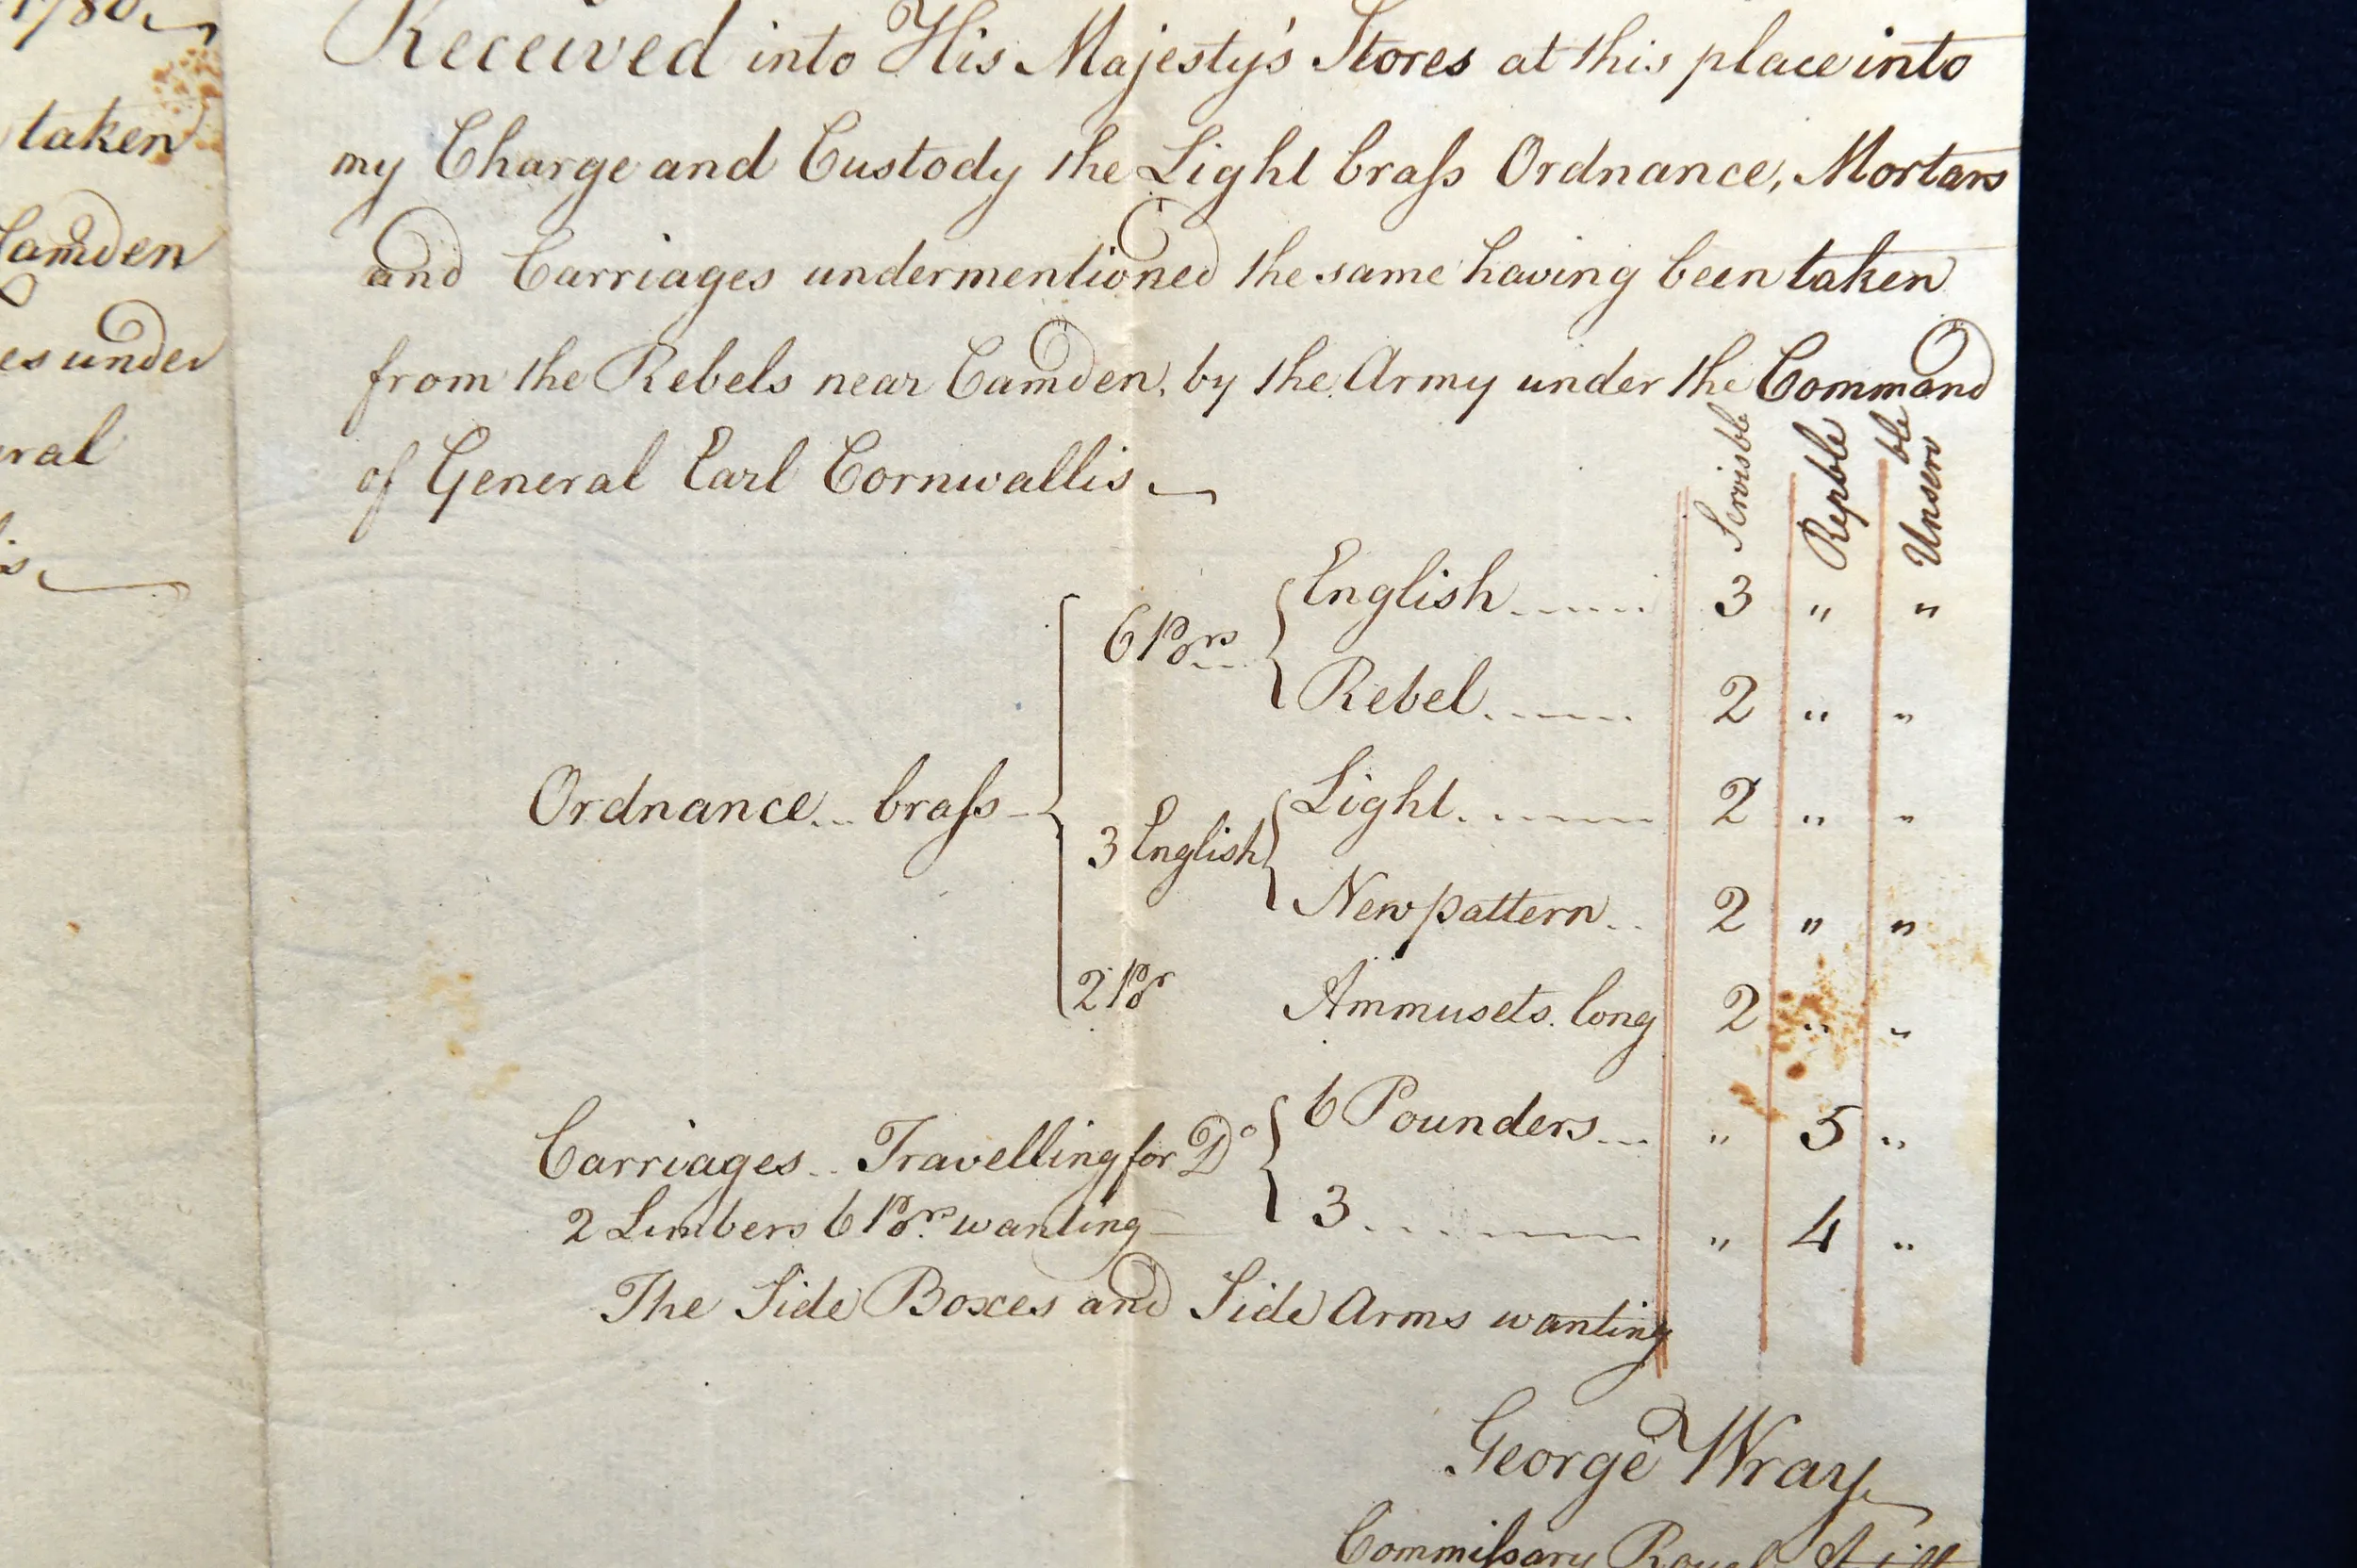 1780
taken
Camden
es under
ral
is
Received into His Majesty's Stores at this place into
my Charge and Custody the Light braſs Ordnance, Mortars
and Carriages undermentioned the same having been taken
from the Rebels near Camden, by the Army under the Command
of General Earl Cornwallis
Servisble Repble Unserv ble
6 Pors English 3 " "
Rebel 2 " "
Ordnance braſs
3 English Light 2 " "
New pattern 2 " "
2 Por Ammusets long 2 " "
Carriages Travelling for Do 6 Pounders " 5 "
2 Limbers 6 Pors wanting 3 " 4 "
The Side Boxes and Side Arms wanting
George Wray
Commiſsary Royal